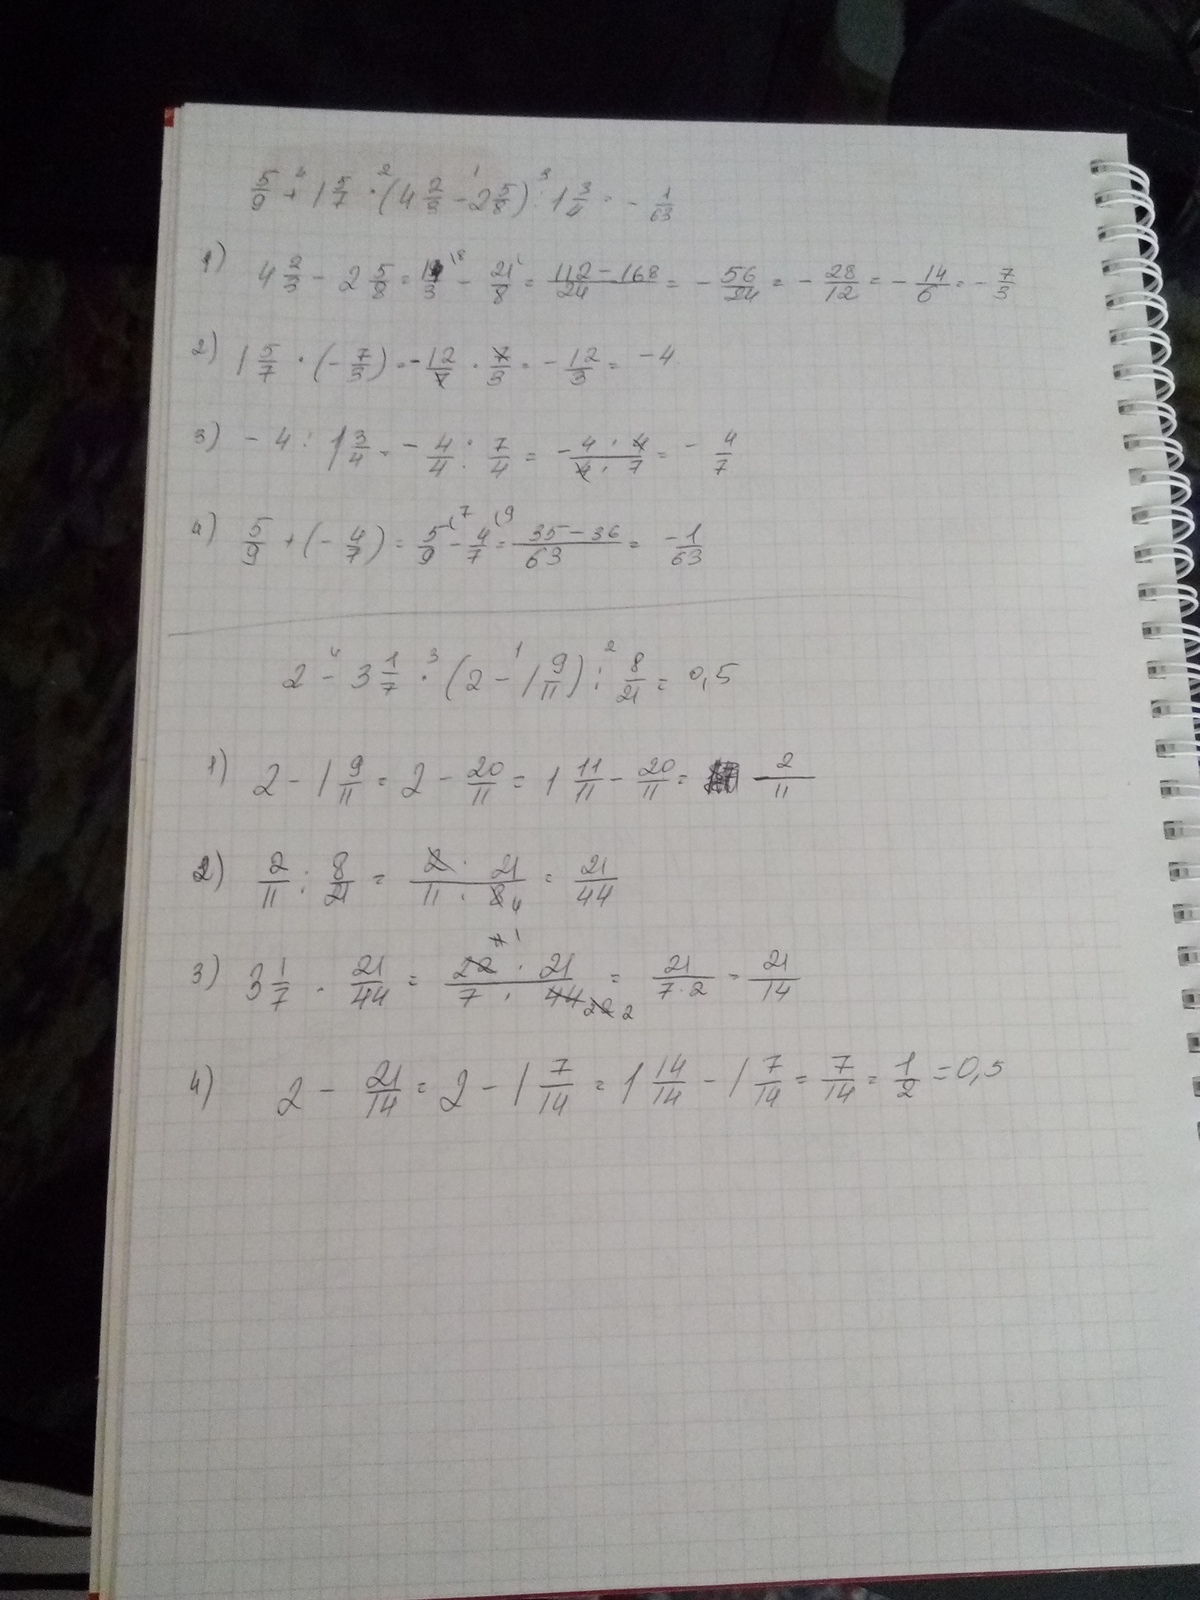 5/9 + 1 5/7 · (4 2/3 - 2 5/8) : 1 3/4 = - 1/63
1) 4 2/3 - 2 5/8 = 14/3 - 21/8 = 112-168/24 = - 56/24 = - 28/12 = - 14/6 = - 7/3
2) 1 5/7 · (- 7/3) = - 12/7 · 7/3 = - 12/3 = -4
3) - 4 : 1 3/4 = - 4/4 : 7/4 = - 4 · 4/4 · 7 = - 4/7
4) 5/9 + (- 4/7) = 5/9 - 4/7 = 35-36/63 = - 1/63
2 - 3 1/7 · (2 - 1 9/11) : 8/21 = 0,5
1) 2 - 1 9/11 = 2 - 20/11 = 1 11/11 - 20/11 = 2/11
2) 2/11 : 8/21 = 2 · 21/11 · 8 4 = 21/44
3) 3 1/7 · 21/44 = 22 · 21/7 · 44 22 2 = 21/7·2 = 21/14
4) 2 - 21/14 = 2 - 1 7/14 = 1 14/14 - 1 7/14 = 7/14 = 1/2 = 0,5